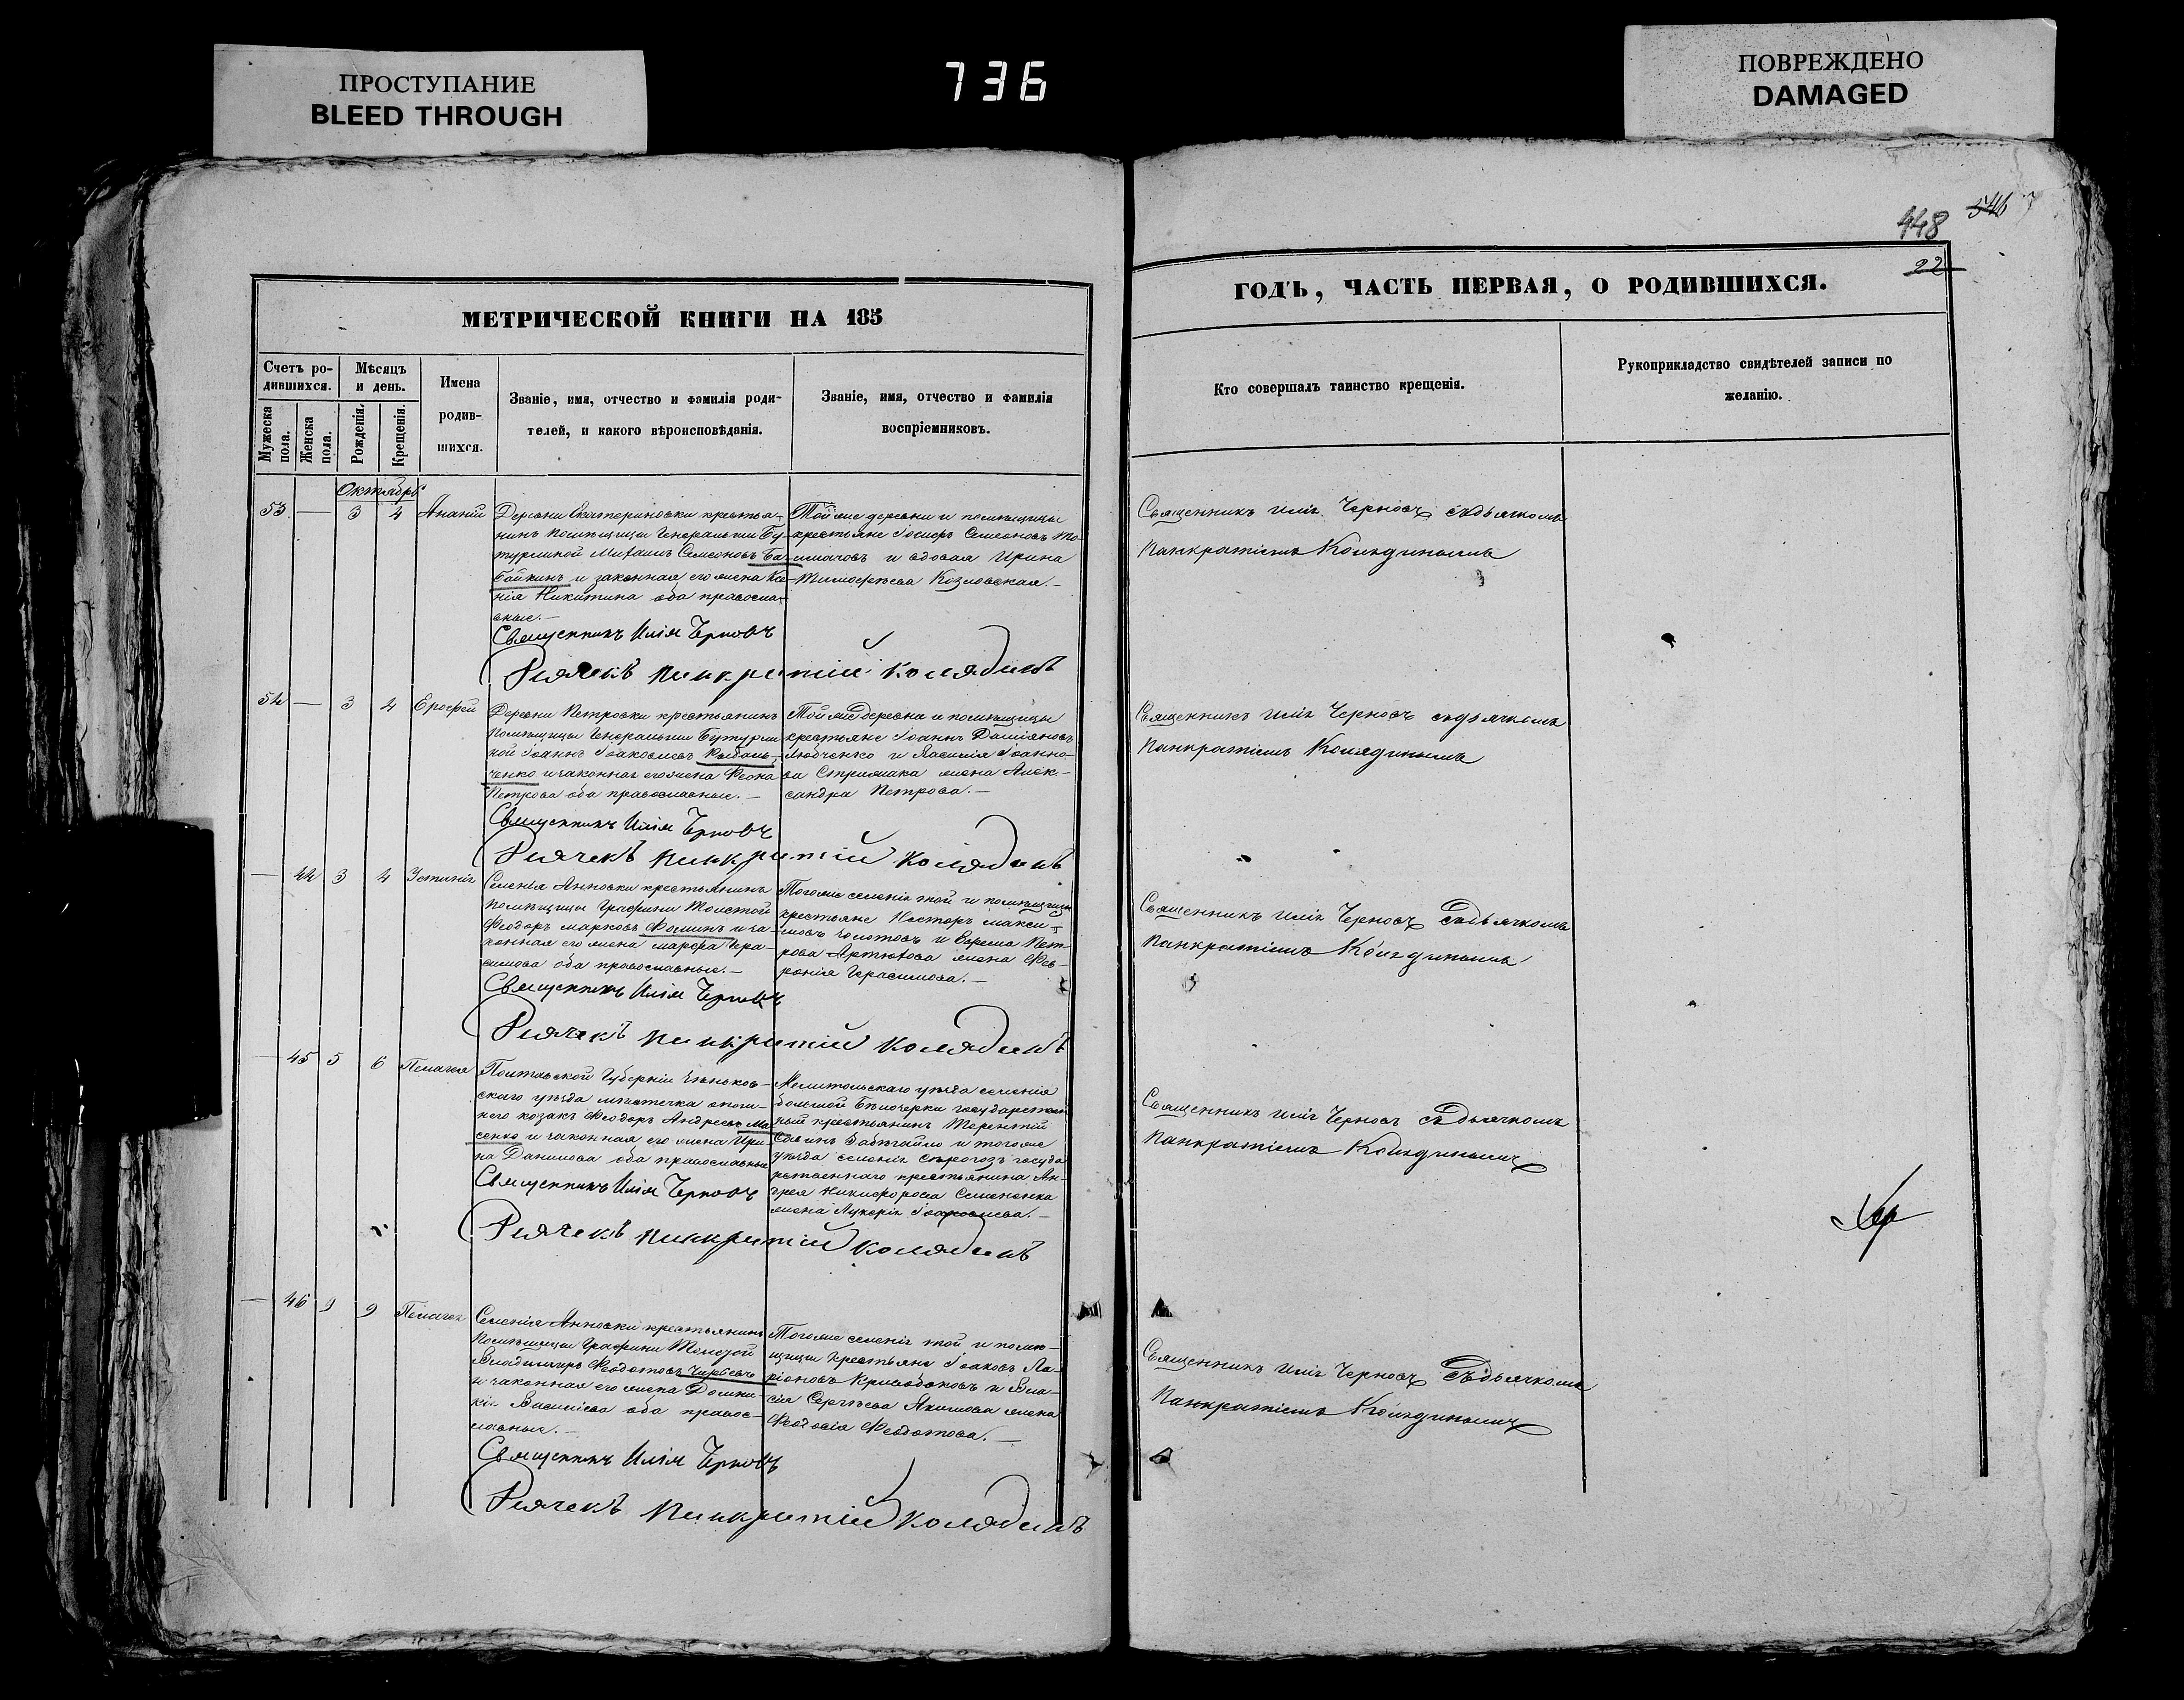 ПРОСТУПАНИЕ
BLEED THROUGH
736
ПОВРЕЖДЕНО
DAMAGED
448
546
22
МЕТРИЧЕСКОЙ КНИГИ НА 185
ГОДЪ, ЧАСТЬ ПЕРВАЯ, О РОДИВШИХСЯ.
Счетъ ро-
дившихся.
Мужеска
пола.
Женска
пола.
Мѣсяцъ
и день.
Рожденія.
Крещенія.
Имена
родив-
шихся.
Званіе, имя, отчество и фамилія роди-
телей, и какого вѣроисповѣданія.
Званіе, имя, отчество и фамилія
воспріемниковъ.
Кто совершалъ таинство крещенія.
Рукоприкладство свидѣтелей записи по
желанію.
Октябрь
53 — 3 4 Ананій
Деревни Екатериновки крестья-
нинъ помѣщицы Генеральши Бу-
турлиной Михаилъ Семеоновъ Ба-
байкинъ и законная его жена Ксе-
нія Никитина оба правосла-
вные.—
Священникъ Илія Черновъ
Дьячекъ Панкратій Колядинъ
Тойже деревни и помѣщицы
крестьяне Іосифъ Семеоновъ
и вдовая Ирина
Тимофѣева Козловская.—
Священникъ Илія Черновъ съ дьячкомъ
Панкратіемъ Колядинымъ
54 — 3 4 Ерофей
Деревни Петровки крестьянинъ
помѣщицы Генеральши Бутурли
ной Іоаннъ Іаковлевъ
ченко и законная его жена Феона
Петрова оба православные.—
Священникъ Илія Черновъ
Дьячекъ Панкратій Колядинъ
Той же деревни и помѣщицы
крестьяне Іоаннъ Даміяновъ
Любченко и Василія Іоанно-
ва Стрижака жена Алек-
сандра Петрова.—
Священникъ Илія Черновъ съ дьячкомъ
Панкратіемъ Колядинымъ
— 44 3 4 Устинія
Селенія Анновки крестьянинъ
помѣщицы Графини Толстой
Феодоръ Марковъ Фоминъ и за-
конная его жена Марфа Гера-
симова оба православные.—
Священникъ Илія Черновъ
Дьячекъ Панкратій Колядинъ
Тогоже селенія той и помѣщицы
крестьяне Несторъ Макси-
мовъ Золотовъ и Ефрема Пет-
рова Артюхова жена Фев-
ронія Герасимова.—
Священникъ Илія Черновъ съ дьячкомъ
Панкратіемъ Колядинымъ
— 45 5 6 Пелагея
Полтавской Губерніи Зѣньков-
скаго уѣзда мѣстечка опош-
него козакъ Феодоръ Андреевъ
сенко и законная его жена Ири
на Данилова оба православные
Священникъ Илія Черновъ
Дьячекъ Панкратій Колядинъ
Мелитопольскаго уѣзда селенія
большой Бѣлозерки государствен
ный крестьянинъ Терентій
Савинъ Забѣгайло и тогоже
уѣзда селенія Сѣрогозъ госуда
рственнаго крестьянина Ан-
дрея Никифорова Семененка
жена Лукерія Іаковлева.—
Священникъ Илія Черновъ съ дьячкомъ
Панкратіемъ Колядинымъ
— 46 9 9 Пелагея
Селенія Анновки крестьянинъ
помѣщицы Графини Толстой
Владимиръ Феодотовъ
и законная его жена Домни-
кія Василіева оба правос-
лавные.—
Священникъ Илія Черновъ
Дьячекъ Панкратій Колядинъ
Тогоже селенія той и помѣ-
щицы крестьяне Іаковъ Ла-
ріоновъ и Вла-
сія Сергѣева Якимова жена
Феодосія Феодотова.—
Священникъ Илія Черновъ съ дьячкомъ
Панкратіемъ Колядинымъ